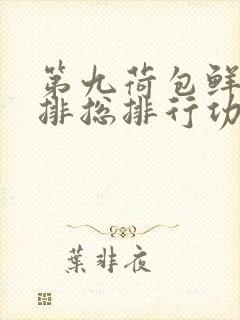 第九荷包鲜
排总排行功
葉非夜